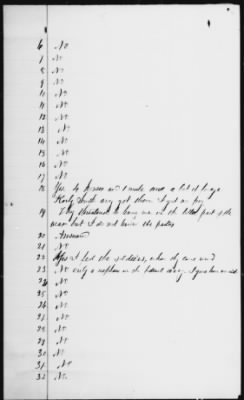 6 No
7 No
8 No
9 No
10 No
11 No
12 No
13 No
14 No
15 No
16 No
17 No
18 Yes 4 horses and 1 mule and a lot of
Kirby Smith army got them I got no pay
19 They threatened to hang me in the latter part of the
war but I do not know the parties
20 Answered
21 No
22 Yes I fed the soldiers, when they came
23 No only a nephew in the Federal army. I gave him
24 No
25 No
26 No
27 No
28 No
29 No
30 No
31 No
32 No